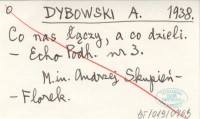 DYBOWSKI A. 1938.
Co nas łączy, a co dzieli.
– Echo Podh. nr 3.
M.in. Andrzej Skupień-
– Florek.